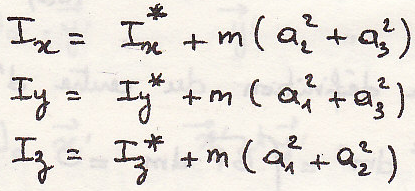 Ix = Ix* + m ( a₂² + a₃² )
Iy = Iy* + m ( a₁² + a₃² )
Iz = Iz* + m ( a₁² + a₂² )